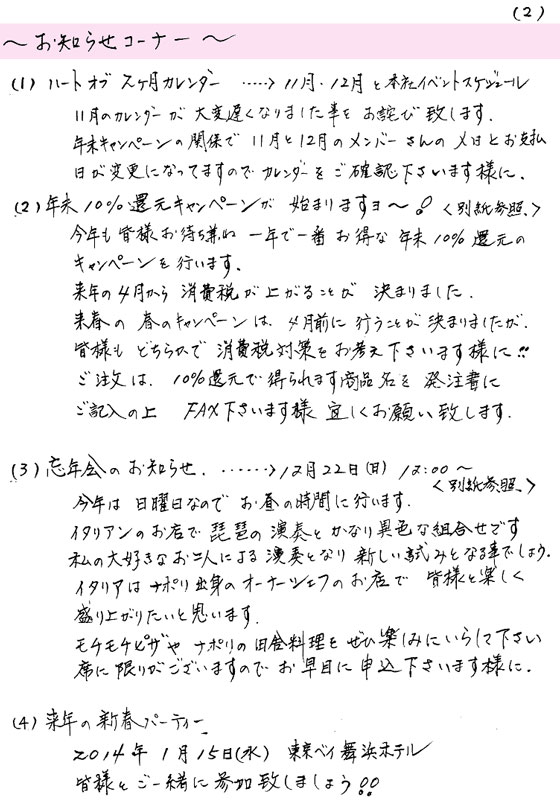 (2)
～お知らせコーナー～
(1) ハートオブスケ月カレンダー ‥‥‥→ 11月・12月と本社イベントスケジュール
11月のカレンダーが大変遅くなりました事をお詫び致します.
年末キャンペーンの関係で11月と12月のメンバーさんの〆日とお支払
日が変更になってますのでカレンダーをご確認下さいます様に.
(2) 年末10%還元キャンペーンが始まりますヨ～! <別紙参照.>
今年も皆様お待ち兼ね 一年で一番お得な年末10%還元の
キャンペーンを行います.
来年の4月から消費税が上がることが決まりました.
来春の春のキャンペーンは、4月前に行うことが決まりましたが.
皆様もどちらかで消費税対策をお考え下さいます様に!!
ご注文は、10%還元で得られます商品名を発注書に
ご記入の上 FAX下さいます様 宜しくお願い致します.
(3) 忘年会のお知らせ. ‥‥‥→12月22日(日) 12:00～
<別紙参照.>
今年は日曜日なのでお昼の時間に行います.
イタリアンのお店で琵琶の演奏とかなり異色な組合せです
私の大好きなお二人による演奏となり新しい試みとなる事でしょう.
イタリアはナポリ出身のオーナーシェフのお店で 皆様と楽しく
盛り上がりたいと思います.
モチモチピザやナポリの田舎料理をぜひ楽しみにいらして下さい
席に限りがございますのでお早目に申込下さいます様に.
(4) 来年の新春パーティー
2014年1月15日(水) 東京ベイ舞浜ホテル
皆様とご一緒に参加致しましょう!!